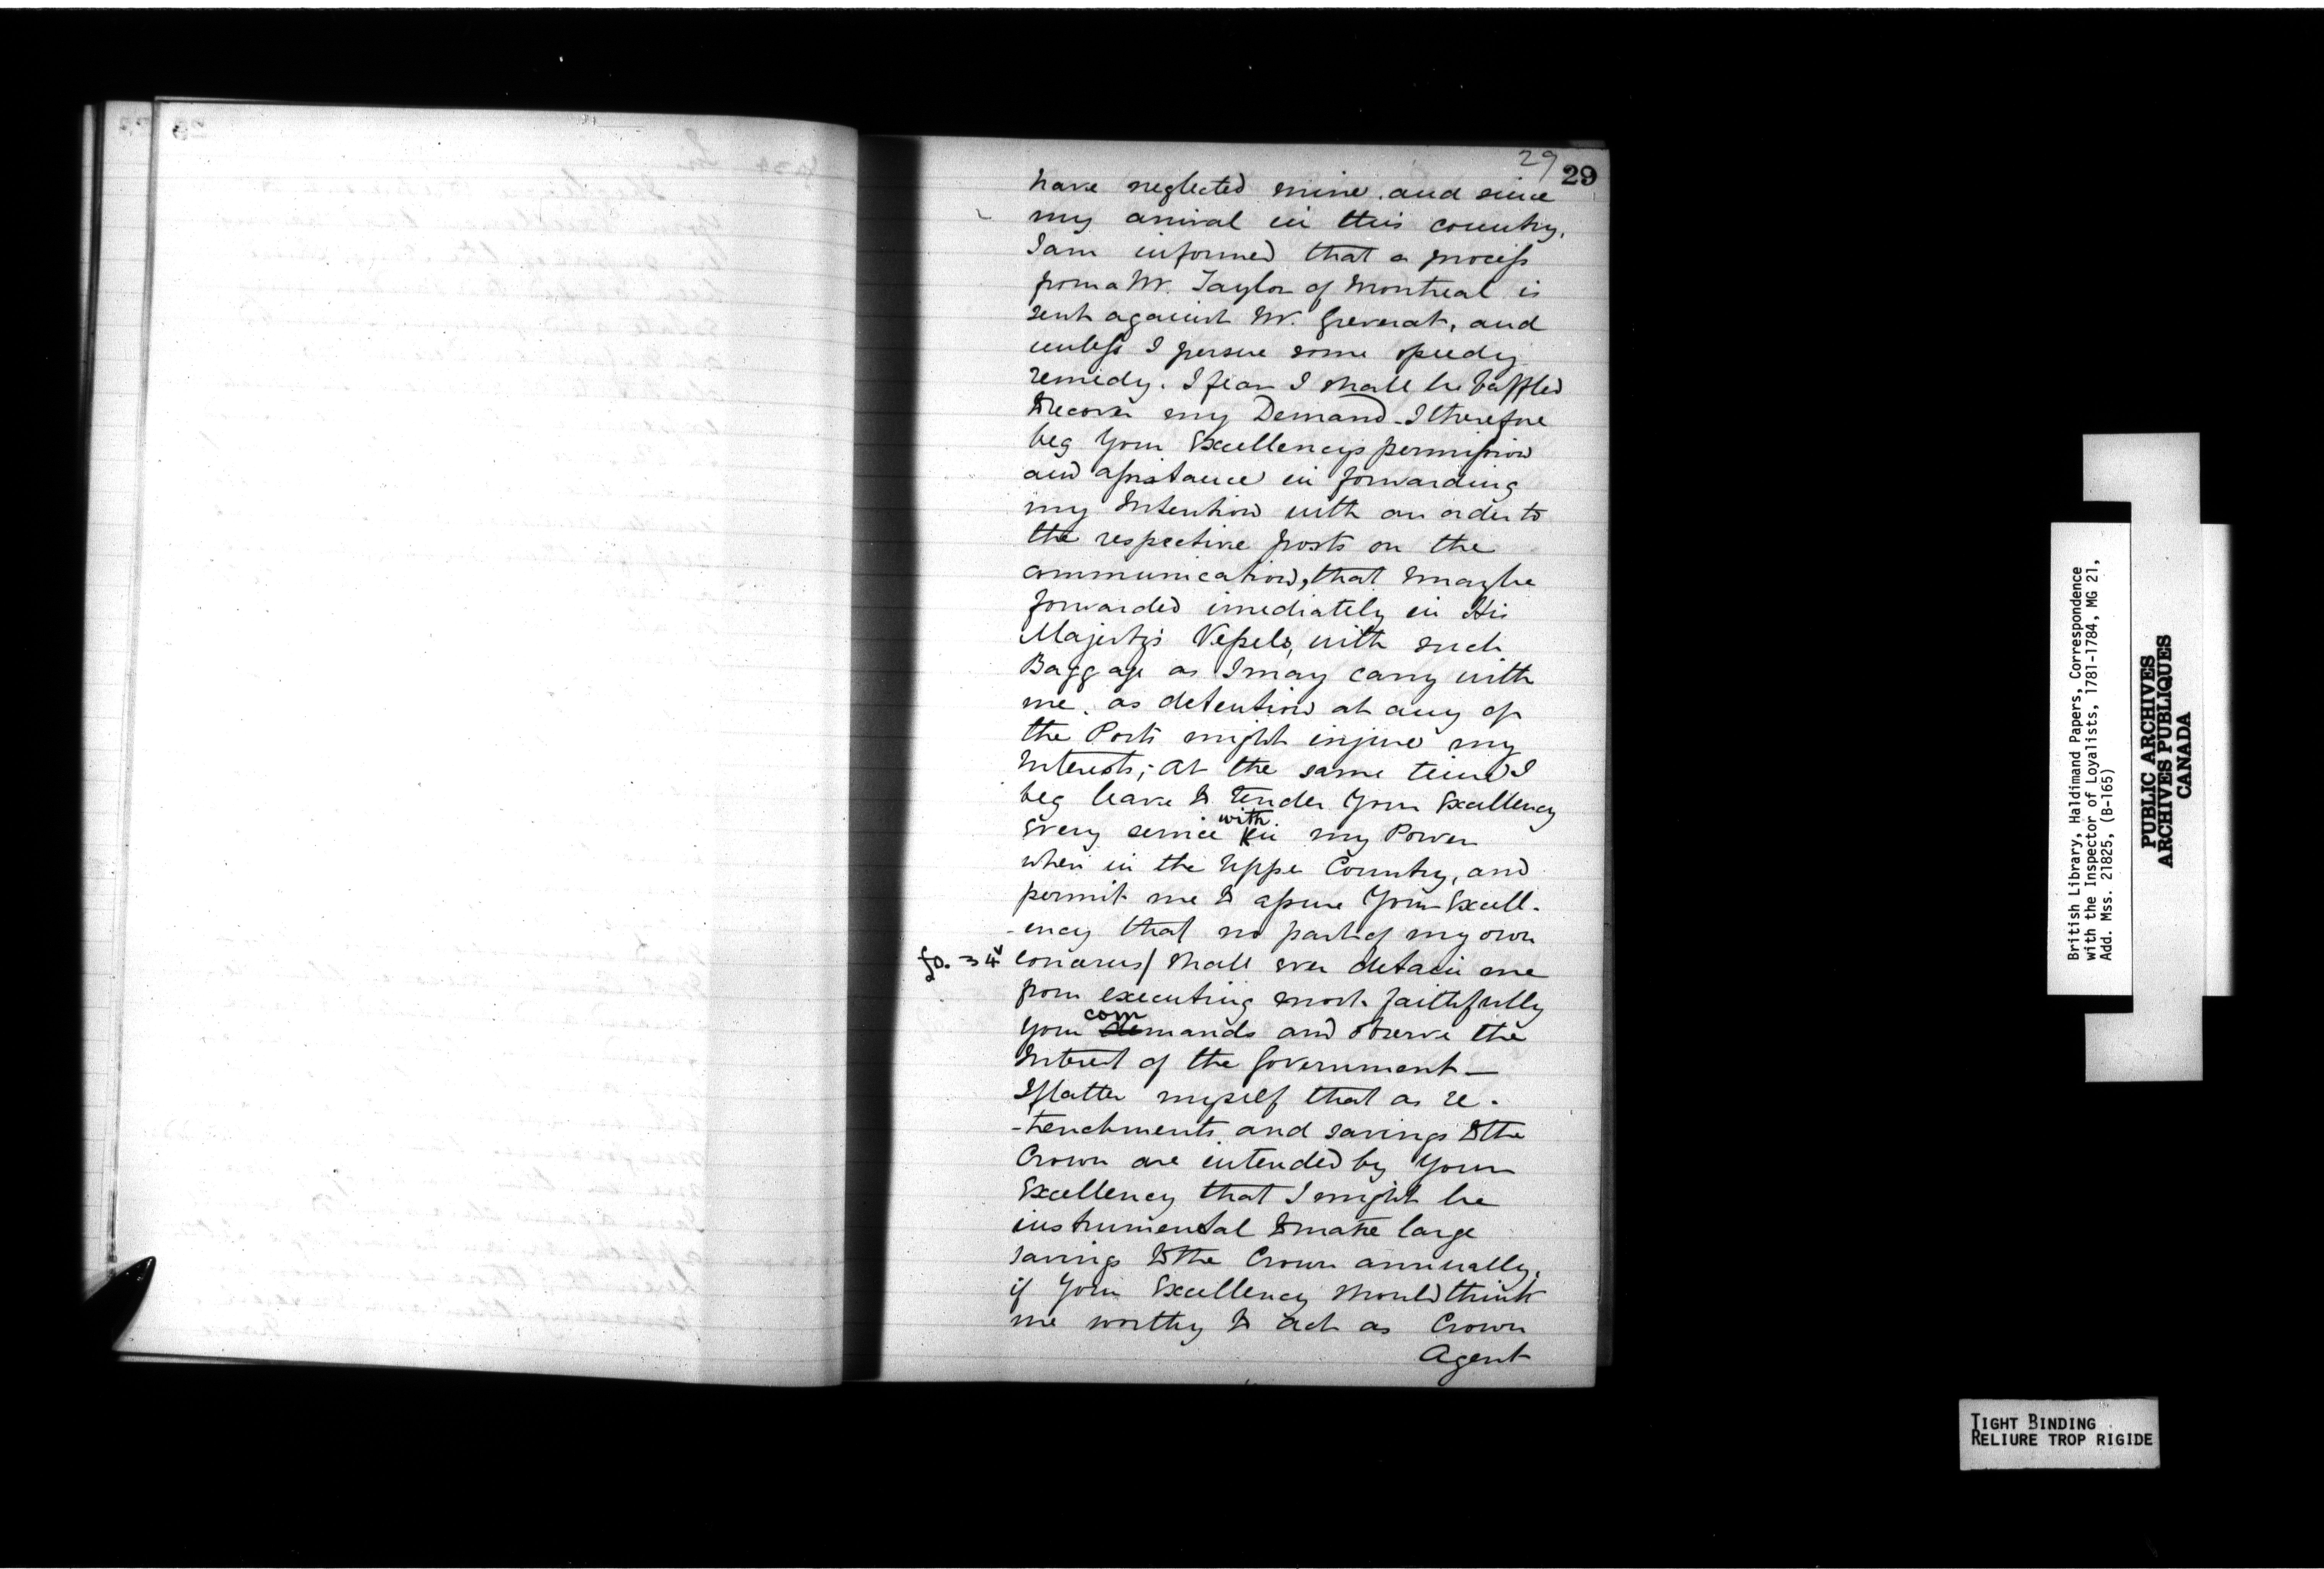 29 29
have neglected mine. and since
my arrival in this country,
I am informed that a process
from a Mr. Taylor of Montreal is
sent against Mr. Greverat, and
unless I persue some speedy
remedy. I fear I shall be baffled
to recover my Demand. I therefore
beg Your Excellencys permission
and assistance in forwarding
my Intention with an order to
the respective posts on the
communication, that I may be
forwarded imediately in His
Majesty's Vessels, with such
Baggage as I may carry with
me. as detention at any of
the Posts might injure my
Interests; at the same time I
beg leave to tender Your Excellency
every service within my Power
when in the Upper Country, and
permit me to assure Your Excell-
-ency that no part of my own
fo. 34v concerns/ shall ever detain me
from executing most faithfully
Your commands and observe the
Interest of the Government—
I flatter myself that as re-
-trenchments and savings to the
Crown are intended by Your
Excellency that I might be
instrumental to make large
savings to the Crown annually,
if Your Excellency should think
me worthy to act as Crown
Agent
British Library, Haldimand Papers, Correspondence
with the Inspector of Loyalists, 1781-1784, MG 21,
Add. Mss. 21825, (B-165)
PUBLIC ARCHIVES
ARCHIVES PUBLIQUES
CANADA
TIGHT BINDING
RELIURE TROP RIGIDE